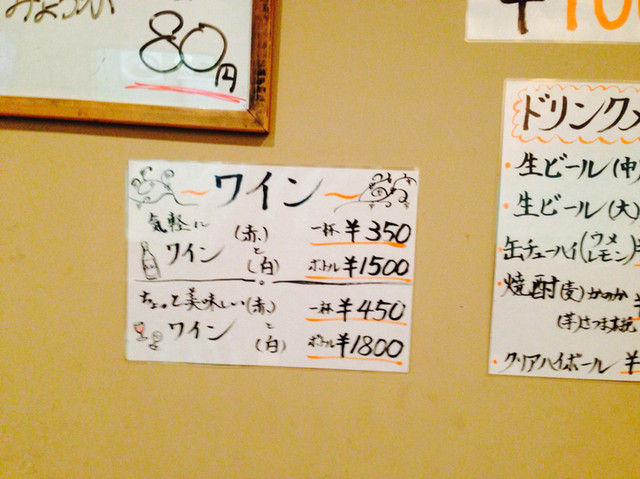 みょうが
80円
¥100
～ワイン～
気軽に
ワイン
(赤)
と
(白)
一杯 ¥350
ボトル ¥1500
ちょっと美味しい(赤)
ワイン
と
(白)
一杯 ¥450
ボトル ¥1800
ドリンクメ
・生ビール(中)
・生ビール(大)
・缶チューハイ(ウメ
レモン)
・焼酎(麦)かのか ¥
(芋)さつま
・クリアハイボール ¥